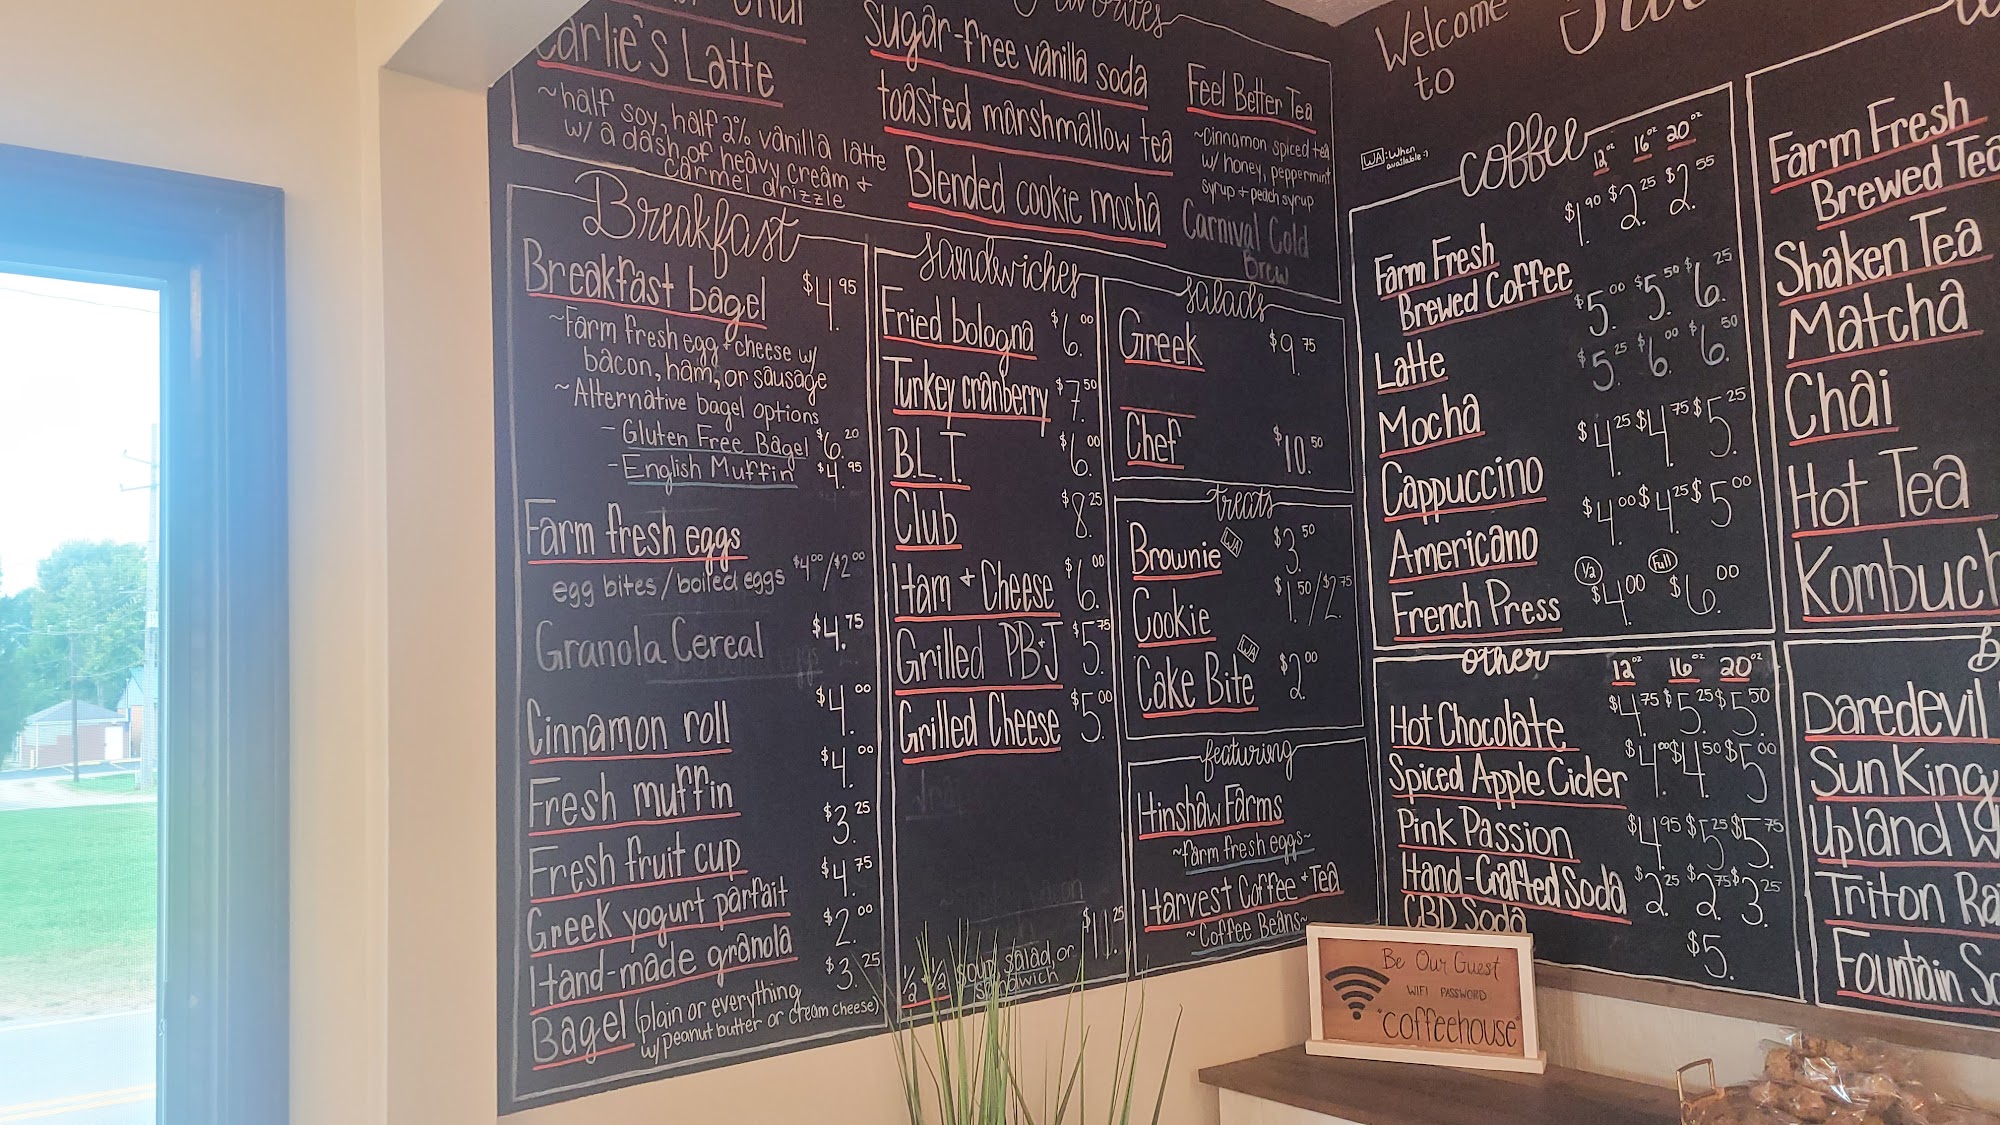 Carlie's Latte
~half soy, half 2% vanilla latte
w/ a dash of heavy cream +
carmel drizzle
Favorites
sugar-free vanilla soda
toasted marshmallow tea
Blended cookie mocha
Feel Better Tea
~cinnamon spiced tea
w/ honey, peppermint
syrup + peach syrup
Carnival Cold
Brew
Breakfast
Breakfast bagel $4.95
~Farm fresh egg + cheese w/
bacon, ham, or sausage
~Alternative bagel options
- Gluten Free Bagel $6.20
- English Muffin $4.95
Farm fresh eggs
egg bites/boiled eggs $4.00/$2.00
Granola Cereal $4.75
Cinnamon roll $4.00
Fresh muffin $4.00
Fresh fruit cup $3.25
Greek yogurt parfait $4.75
Hand-made granola $2.00
Bagel (plain or everything $3.25
w/peanut butter or cream cheese)
sandwiches
Fried bologna $6.00
Turkey cranberry $7.50
B.L.T. $6.00
Club $8.25
Ham + Cheese $6.00
Grilled PB+J $5.75
Grilled Cheese $5.00
$11.25
1/2 + 1/2 soup, salad, or
sandwich
salads
Greek $9.75
Chef $10.50
treats
Brownie WA $3.50
Cookie $1.50/$2.75
Cake Bite WA $2.00
featuring
Hinshaw Farms
~farm fresh eggs~
Harvest Coffee + Tea
~Coffee Beans~
Welcome
to
WA: When
available :)
coffee 12oz 16oz 20oz
Farm Fresh
Brewed Coffee $1.90 $2.25 $2.55
Latte $5.00 $5.50 $6.25
Mocha $5.25 $6.00 $6.50
Cappuccino $4.25 $4.75 $5.25
Americano $4.00 $4.25 $5.00
French Press 1/2 $4.00 Full $6.00
other 12oz 16oz 20oz
Hot Chocolate $4.75 $5.25 $5.50
Spiced Apple Cider $4.00 $4.50 $5.00
Pink Passion $4.95 $5.25 $5.75
Hand-Crafted Soda $2.25 $2.75 $3.25
CBD Soda $5.
Farm Fresh
Brewed Tea
Shaken Tea
Matcha
Chai
Hot Tea
Kombuch
Daredevil
Sun King
Upland W
Triton Ra
Fountain So
Be Our Guest
WIFI PASSWORD
"coffeehouse"